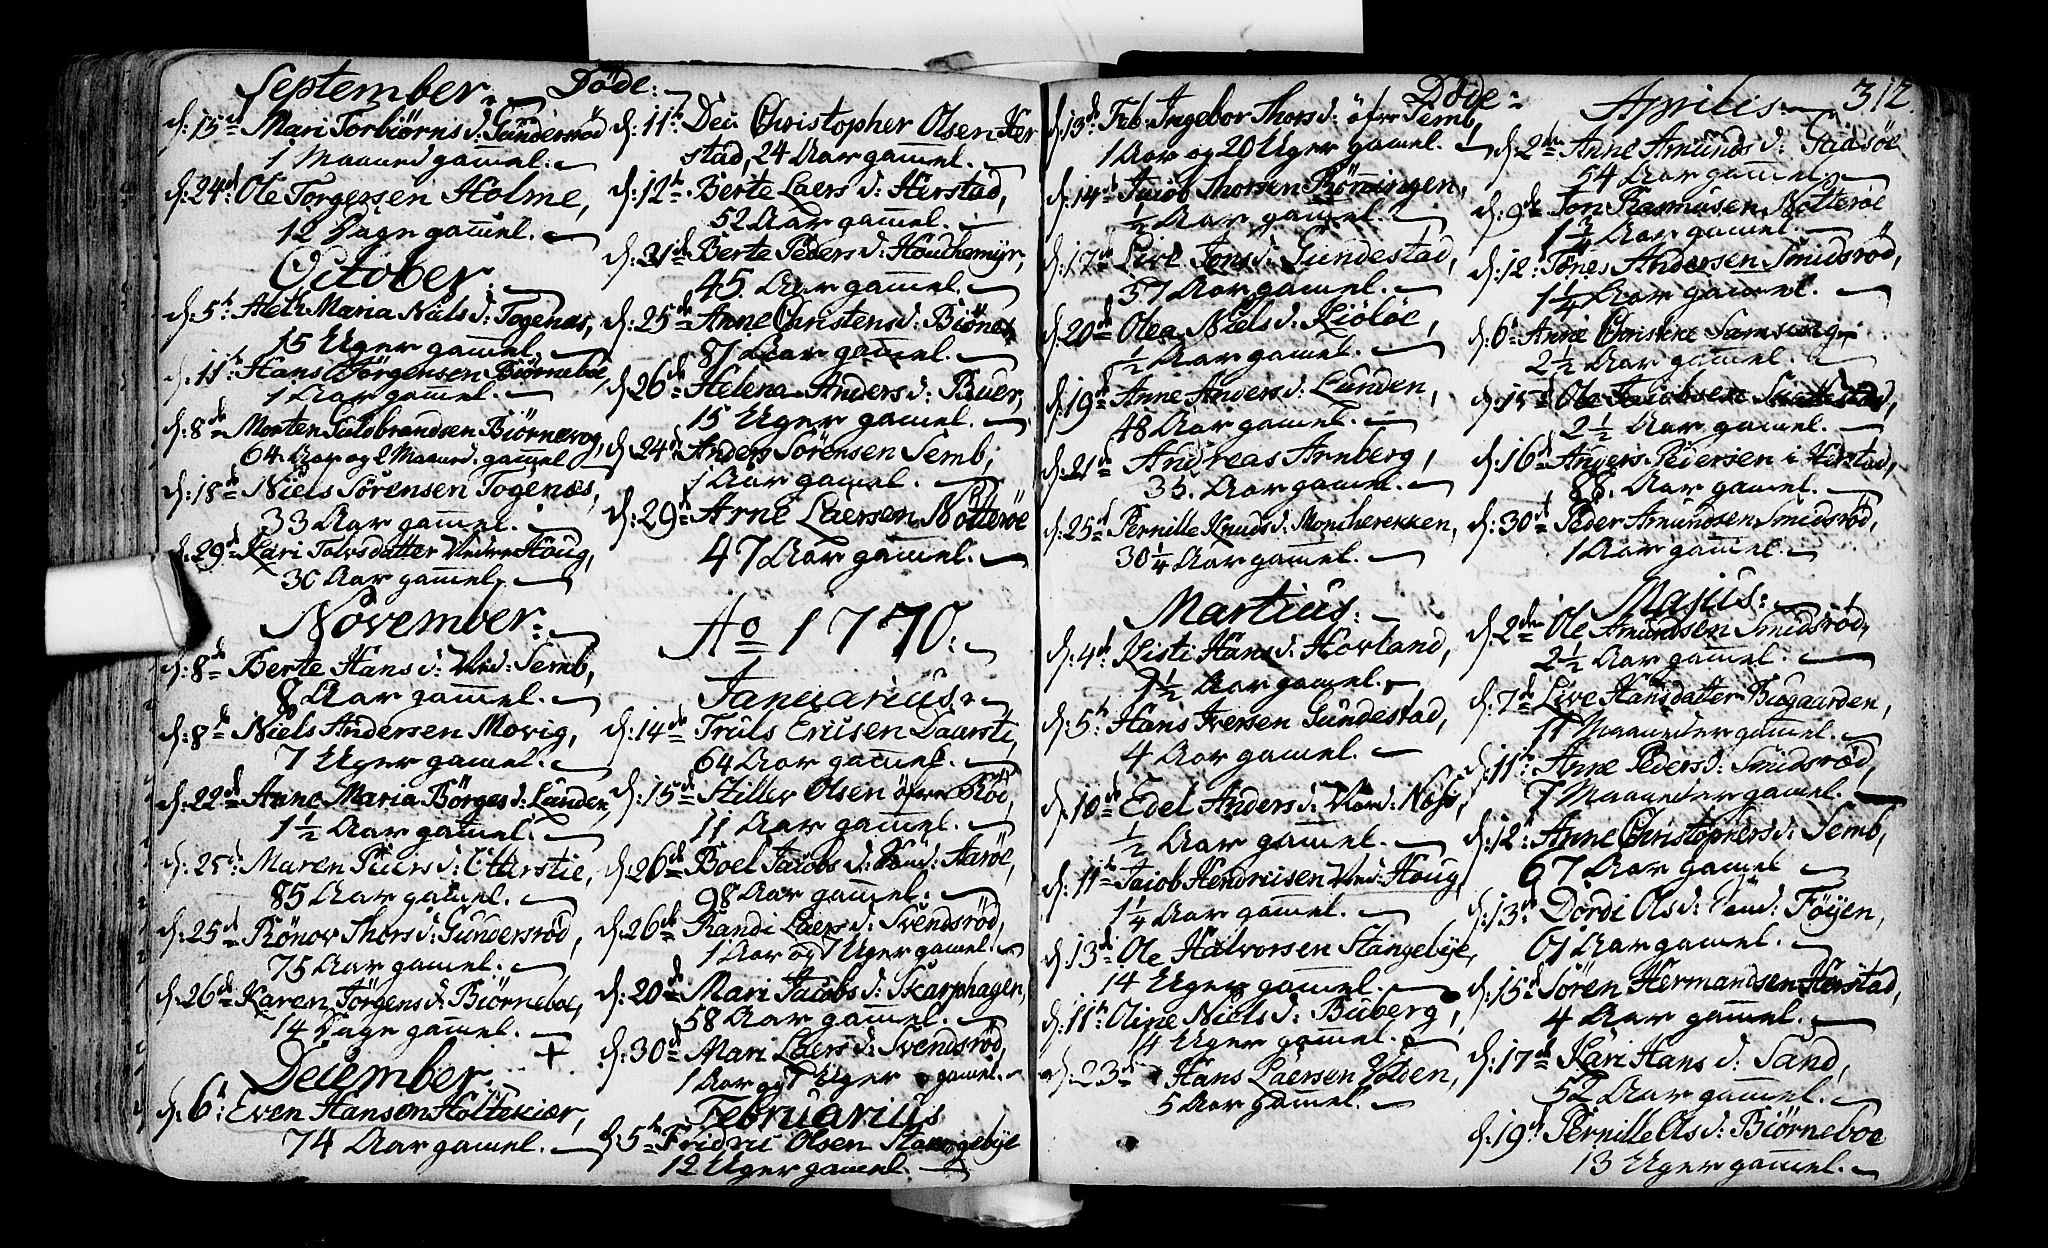 September. Døde:
d: 15de Mari Torbiørns d: Gundersrød
1 Maaned gammel.
d: 24de Ole Torgersen Holme,
12 Dage gammel.
October.
d: 5te Aleth Maria Niels d: Togenæs,
15 Uger gammel.
d: 11te Hans Jørgensen Biørneboe,
1 Aar gammel.
d: 8de Morten Guldbrandsen Biørnevog,
64 Aar og 2 Maaned. gammel
d: 18de Niels Sørensen Togenæs,
33 Aar gammel.
d: 29de Kari Tolvsdatter Nedre Houg,
30 Aar gammel.
November:
d: 8de Berte Hans d: Ned: Semb,
8 Aar gammel.
d: 8de Niels Andersen Movig,
7 Uger gammel.
d: 22de Anne Maria Børges d: Lunden,
1½ Aar gammel.
d: 25de Maren Peders d:
85 Aar gammel.
d: 25de Rønov Thors d: Gundersrød,
75 Aar gammel.
d: 26de Karen Jørgens d: Biørneboe,
14 Dage gammel.
December. +
d: 6te Even Hansen Holtekiær,
74 Aar gammel.
d: 11te Dec: Christopher Olsen Her
stad, 24 Aar gammel.
d: 12te Berte Laers d: Herstad,
52 Aar gammel.
d: 21de Berte Peders d: Houchemyr,
45 Aar gammel.
d: 25de Anne Christens d: Biønes
87 Aar gammel.
d: 26de Helena Anders d: Buer,
15 Uger gammel.
d: 24de Anders Sørensen Semb,
1 Aar gammel.
d: 29de Arne Laersen Nøtterøe
47 Aar gammel.
Ao 1770.
Januarius.
d: 14de Truls Ericsen
64 Aar gammel.
d: 15de Olsen øfre Rød,
11 Aar gammel.
d: 26de Boel Jacobs d: Aarøe,
98 Aar gammel.
d: 26de Randi Laers d: Svendsrød,
1 Aar og 7 Uger gammel.
d: 20de Mari Jacobs d: Skarphagen,
58 Aar gammel.
d: 30de Mari Laers d: Svendsrød,
1 Aar og 7 Uger gamel.
Februarius
d: 5te Fridric Olsen Stangebÿe
12 Uger gammel.
Døde: 312.
d: 13de Feb: Ingebor Thors d: øfre Semb,
1 Aar og 20 Uger gamel.
d: 14de Jacob Thorsen Rønningen,
½ Aar gammel.
d: 17de Live Jons d: Gundestad,
37 Aar gammel.
d: 20de Olea Niels d: Kiøløe,
½ Aar gammel.
d: 19de Anne Anders d: Lunden,
48 Aar gammel.
d: 21de Andreas Arnberg,
35. Aar gammel.
d: 25de Pernille Knuds d: Moncherekken,
30¼ Aar gammel.
Martius:
d: 4de Kisti Hans d: Hovland,
1½ Aar gammel.
d: 5te Hans Iversen Gundestad,
4 Aar gammel.
d: 10de Edel Anders d: Nord: Næss,
½ Aar gammel.
d: 11te Jacob Hendricsen Ned: Houg,
1¼ Aar gammel.
d: 13de Ole Halvorsen Stangebÿe,
14 Uger gammel.
d: 11te Oline Niels d: Buberg,
14 Uger gammel.
d: 23de Hans Laersen Volden,
5 Aar gammel.
Aprilis.
d: 2den Anne Amunds d: Gaasøe
54 Aar gammel.
d: 9de Jon Rasmusen Nøtterøe
1¼ Aar gammel.
d: 12te Tønes Andersen Smidsrød,
1¼ Aar gammel.
d: 6te Anne Christine
2½ Aar gammel.
d: 15de Ole Jacobsen
2½ Aar gammel.
d: 16de Anders Pedersen i Herstad,
88. Aar gammel.
d: 30de Peder Amundsen Smidsrød,
1 Aar gammel.
Majus:
d: 2den Ole Amundsen Smidsrød,
2½ Aar gammel.
d: 7de Live Hansdatter Bøgaarden,
11 Maaneder gammel.
d: 11te Anne Peders d: Smidsrød,
7 Maaneder gammel.
d: 12te Anne Christophers d: Semb,
67 Aar gammel
d: 13de Dordi Ols d: Føÿen,
61 Aar gammel.
d: 15de Søren Hermandsen Herstad,
4 Aar gammel.
d: 17de Kari Hans d: Sand,
52 Aar gammel.
d: 19de Pernille Ols d: Biørneboe
13 Uger gammel.